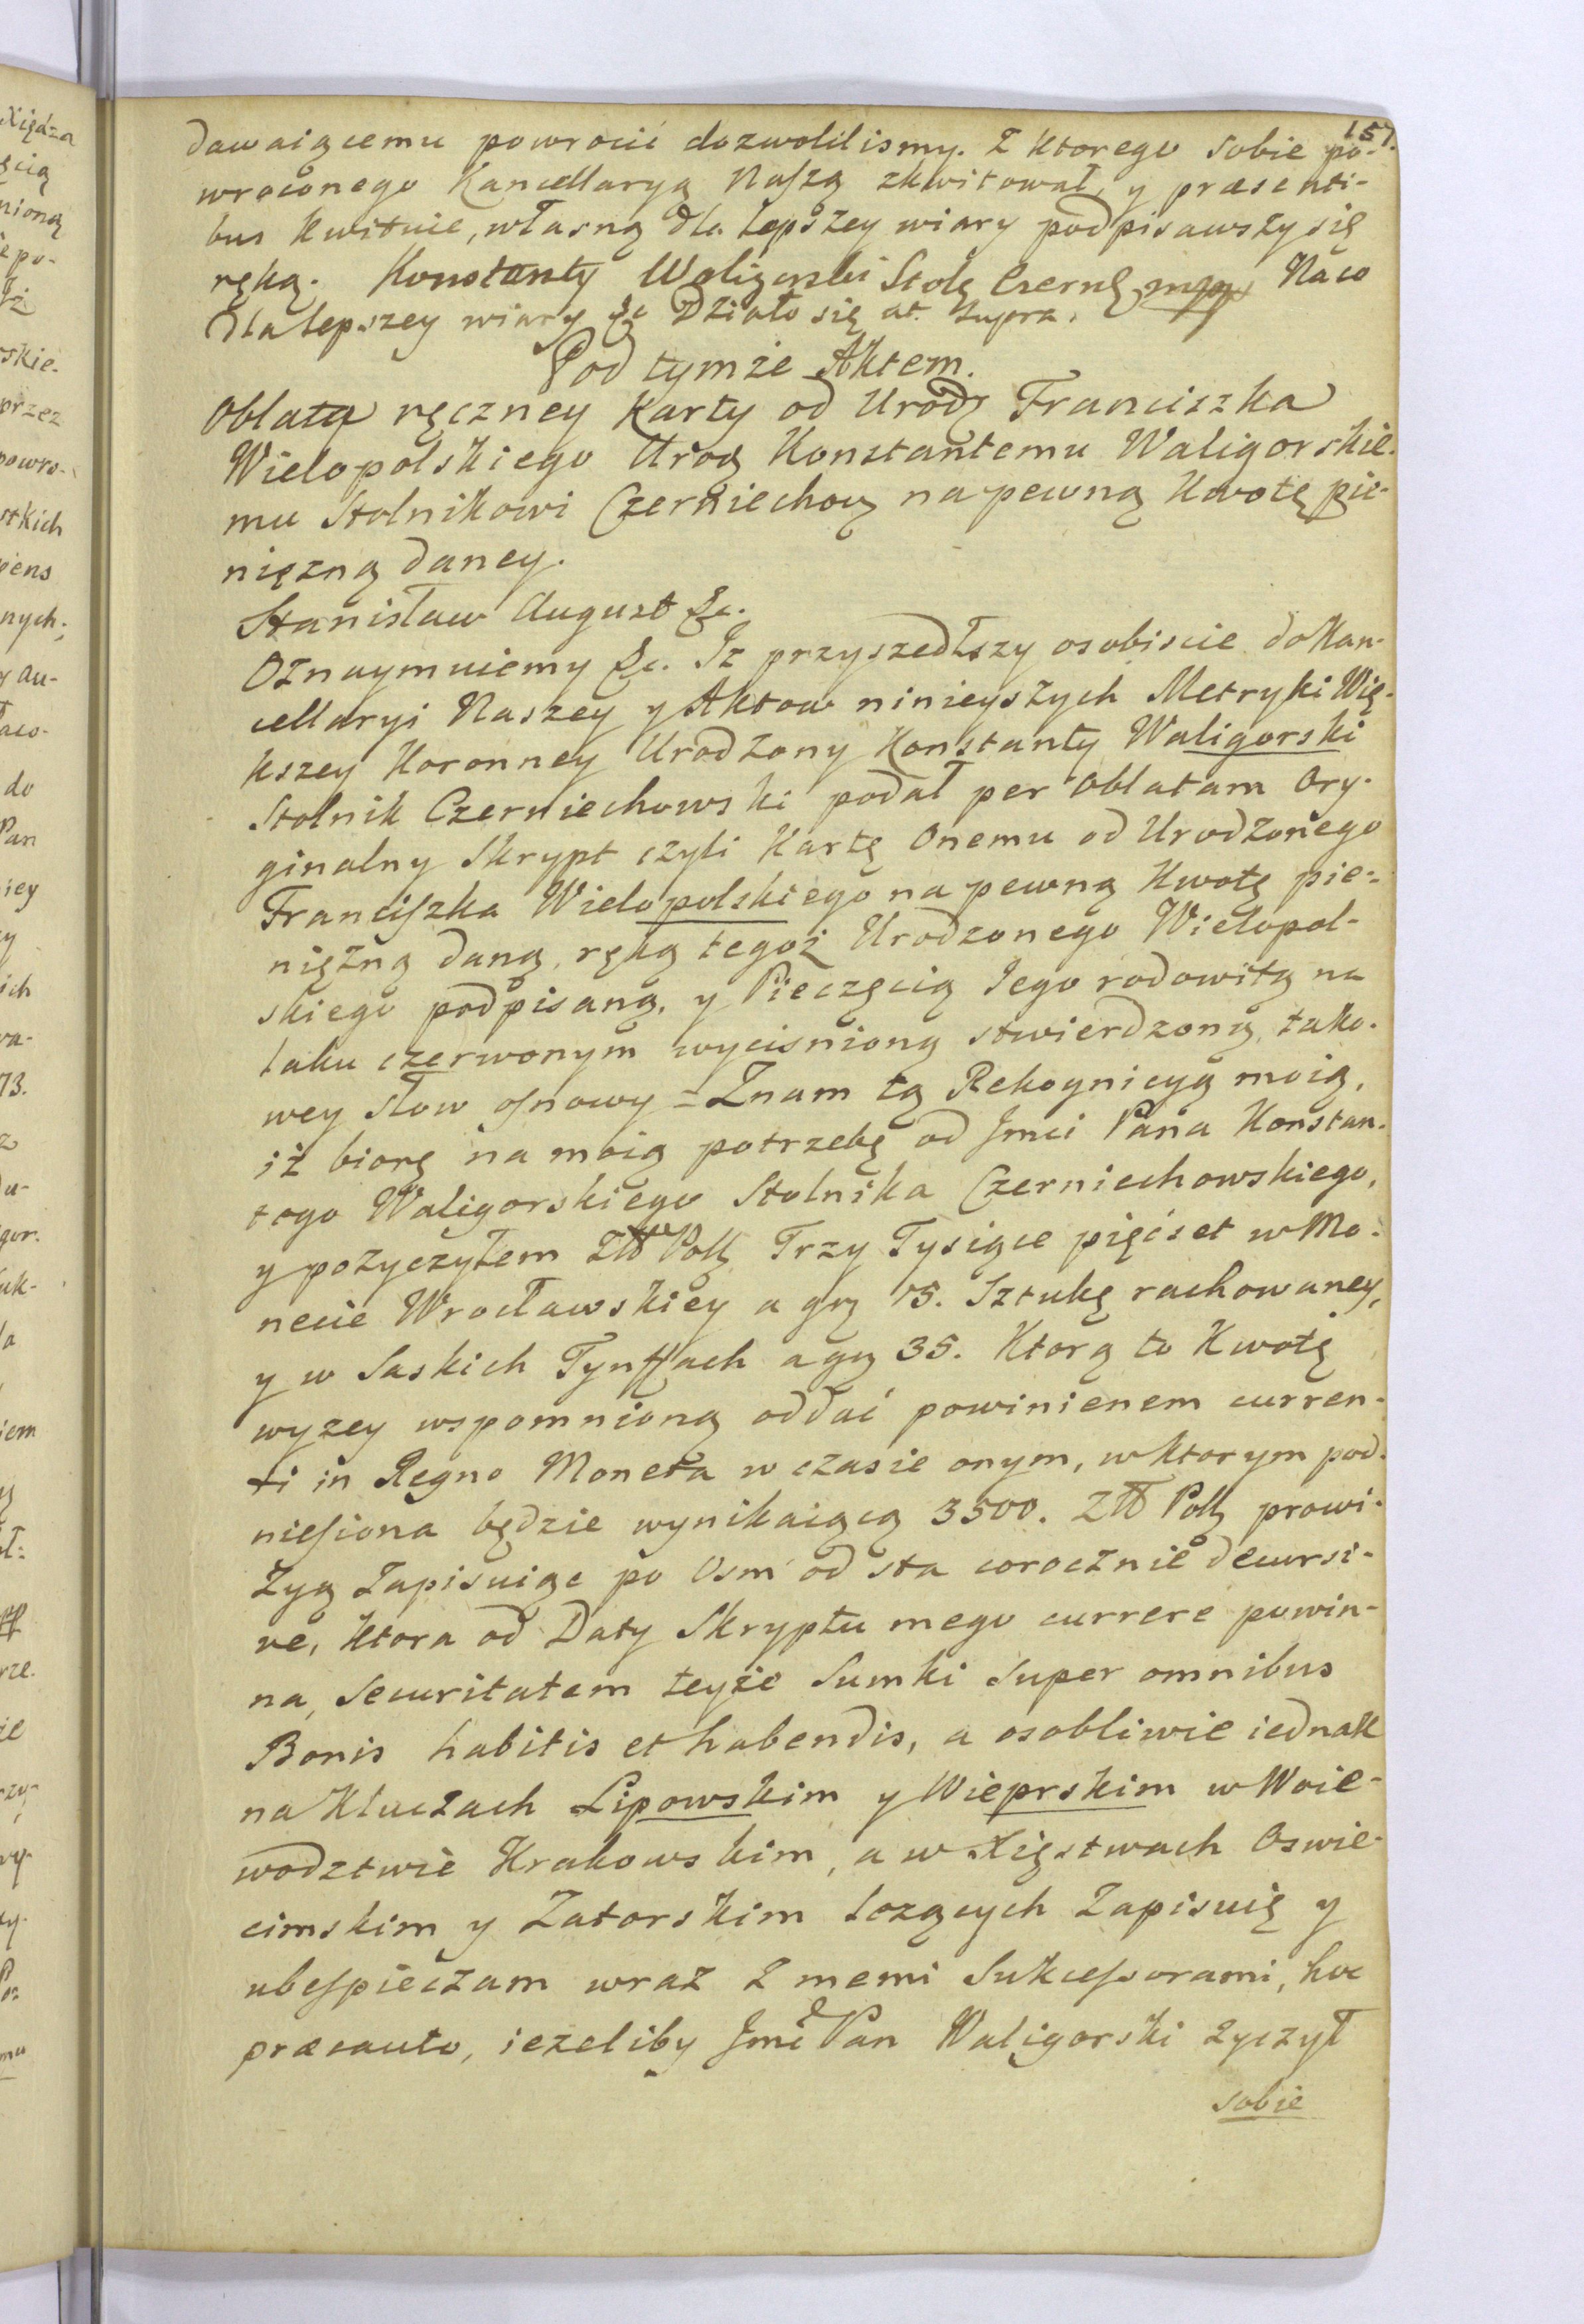 151.
dawaiącemu powrocić dozwolilismy. Z ktorego sobie po-
wroconego Kancellaryą Naszą zkwitował, y præsenti-
bus kwituie, własną dla lepszey wiary podpisawszy się
ręką. Konstanty Waligorski Stolę Czernę mpp Na co
dla lepszey wiary &c Działo się ut supra.
Pod tymże Aktem.
Oblata ręczney Karty od Urodz Franciszka
Wielopolskiego Urod Konstantemu Waligorskie-
mu Stolnikowi Czerniechow na pewną kwotę pie-
nięzną daney.
Stanisław August &c.
Oznaymuiemy &c. Iz przyszedłszy osobiscie do Kan-
cellaryi Naszey y Aktow ninieyszych Metryki Wię-
kszey Koronney Urodzony Konstanty Waligorski
Stolnik Czerniechowski podał per Oblatam Ory-
ginalny Skrypt czyli Kartę Onemu od Urodzonego
Franciszka Wielopolskiego na pewną kwotę pie-
nięzną daną, ręką tegoż Urodzonego Wielopol-
skiego podpisaną, y Pieczęcią Jego rodowitą na
laku czerwonym wycisnioną stwierdzoną, tako-
wey słow osnowy = Znam tą Rekognicyą moią,
iż biorę na moią potrzebę od Jmci Pana Konstan-
tego Waligorskiego Stolnika Czerniechowskiego,
y pożyczyłem Złł Poll Trzy Tysiące pięćset w Mo-
necie Wrocławskiey a grz 15. Sztukę rachowaney,
y w Saskich Tynffach a grz 35. Ktorą to Kwotę
wyzey wspomnioną oddać powinienem curren-
ti in Regno Moneta w czasie onym, w ktorym pod-
niesiona będzie wynikaiącą 3500. Złł Poll prowi-
zyą zapisuiąc po Osm od sta corocznie decursi-
ve, ktora od Daty Skryptu mego currere powin-
na, Securitatem teyże Sumki super omnibus
Bonis habitis et habendis, a osobliwie iednak
na Kluczach Lipowskim y Wieprskim w Woie-
wodztwie Krakowskim, a w Xięstwach Oswie-
cimskim y Zatorskim lezących zapisuię y
ubespieczam wraz z memi Sukcessorami, hoc
præcauto, iezeliby Jmć Pan Waligorski zyczył
sobie